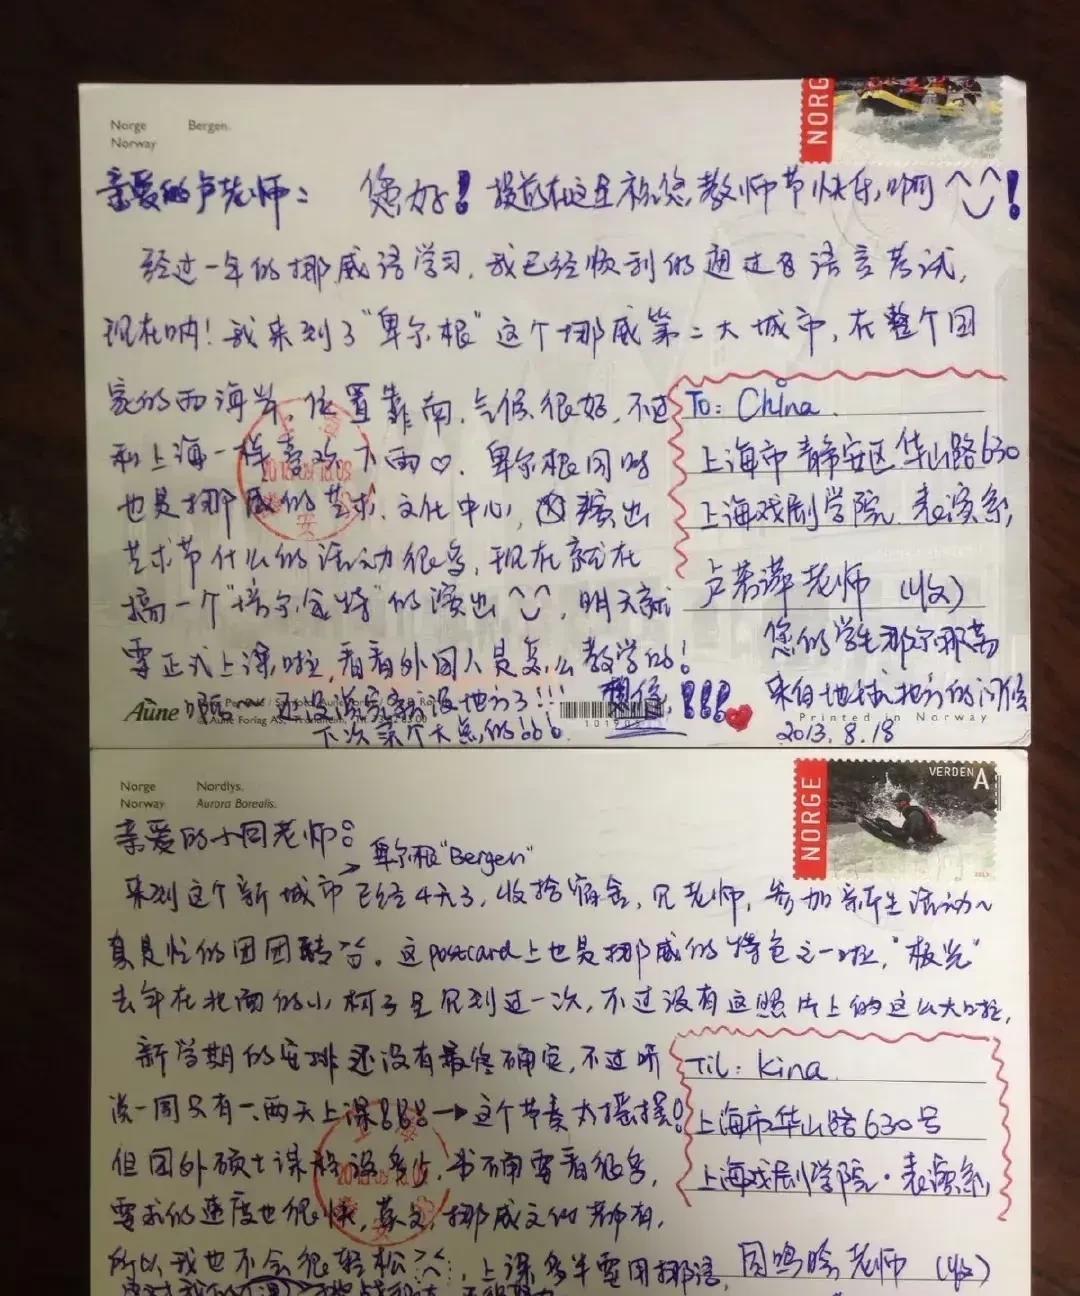 Norge Bergen.
Norway
NORG
亲爱的卢老师： 您好！提前在这里祝您教师节快乐，啊！
经过一年的挪威语学习，我已经顺利的通过语言考试，
现在呐！我来到了“卑尔根”这个挪威第二大城市，在整个国
家的西海岸，位置靠南，气候很好，不过
和上海一样喜欢下雨♡。卑尔根同时
也是挪威的艺术、文化中心，演出
艺术节什么的活动很多，现在就在
搞一个“培尔·金特”的演出，明天就
要正式上课啦，看看外国人是怎么教学的！
还没写完就没地方了！！！
下次
To: China.
上海市静安区华山路630
上海戏剧学院 表演系
卢若萍老师（收）
您的学生那尔那茜
来自地球
2013.8.18
Aune
Printed in Norway
Norge Nordlys.
Norway Aurora Borealis.
NORGE
VERDEN A
亲爱的小周老师：
卑尔根“Bergen”
来到这个新城市已经4天了，收拾宿舍，见老师，参加新生活动~
真是忙的团团转。这postcard上也是挪威的特色之一啦，“极光”
去年在北面的小村子里见到过一次，不过没有这照片上的这么大啦，
新学期的安排还没有最终确定，不过听
说一周只有一、两天上课！！！→这个节奏太摇摆！
但国外硕士课程设，书需要看很多，
要求的速度也很快，英文，挪威文的都有，
所以我也不会很轻松，上课多半要用挪语，
Til: Kina.
上海市华山路630号
上海戏剧学院·表演系
老师（收）